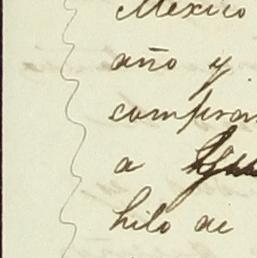 Mexico
año y
compran
a
hilo de